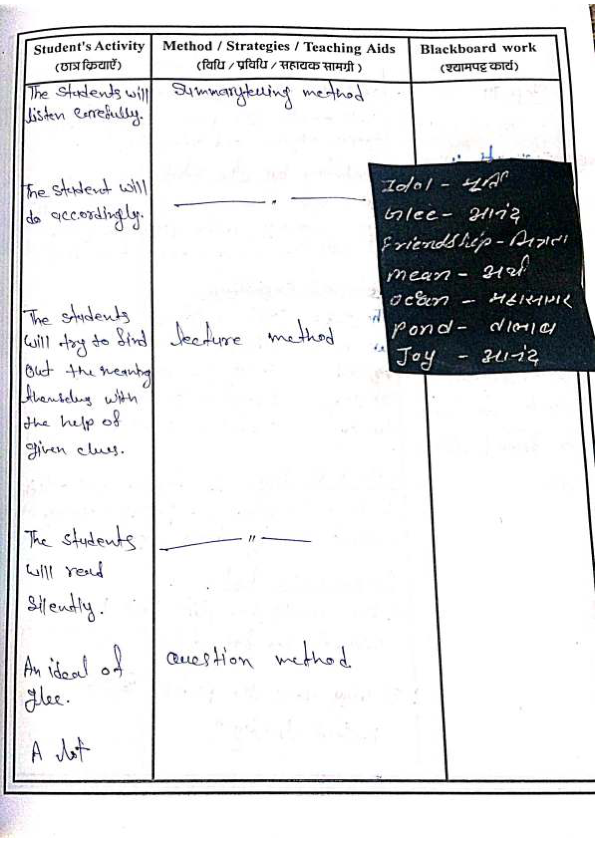 Student's Activity
(छात्र क्रियाएँ)
Method / Strategies / Teaching Aids
(विधि / प्रविधि / सहायक सामग्री )
Blackboard work
(श्यामपट्ट कार्य)
The Students will
listen carefully.
Summarytelling method
The student will
do accordingly.
"
Idol - मूर्ति
Glee - आनंद
friendship - मित्रता
mean - अर्थ
Ocean - महासागर
Pond - तालाब
Joy - आनंद
The students
will try to find
out the meaning
with
the help of
given clues.
lecture method
The students
will read
Silently.
"
An ideal of
glee.
question method
A lot